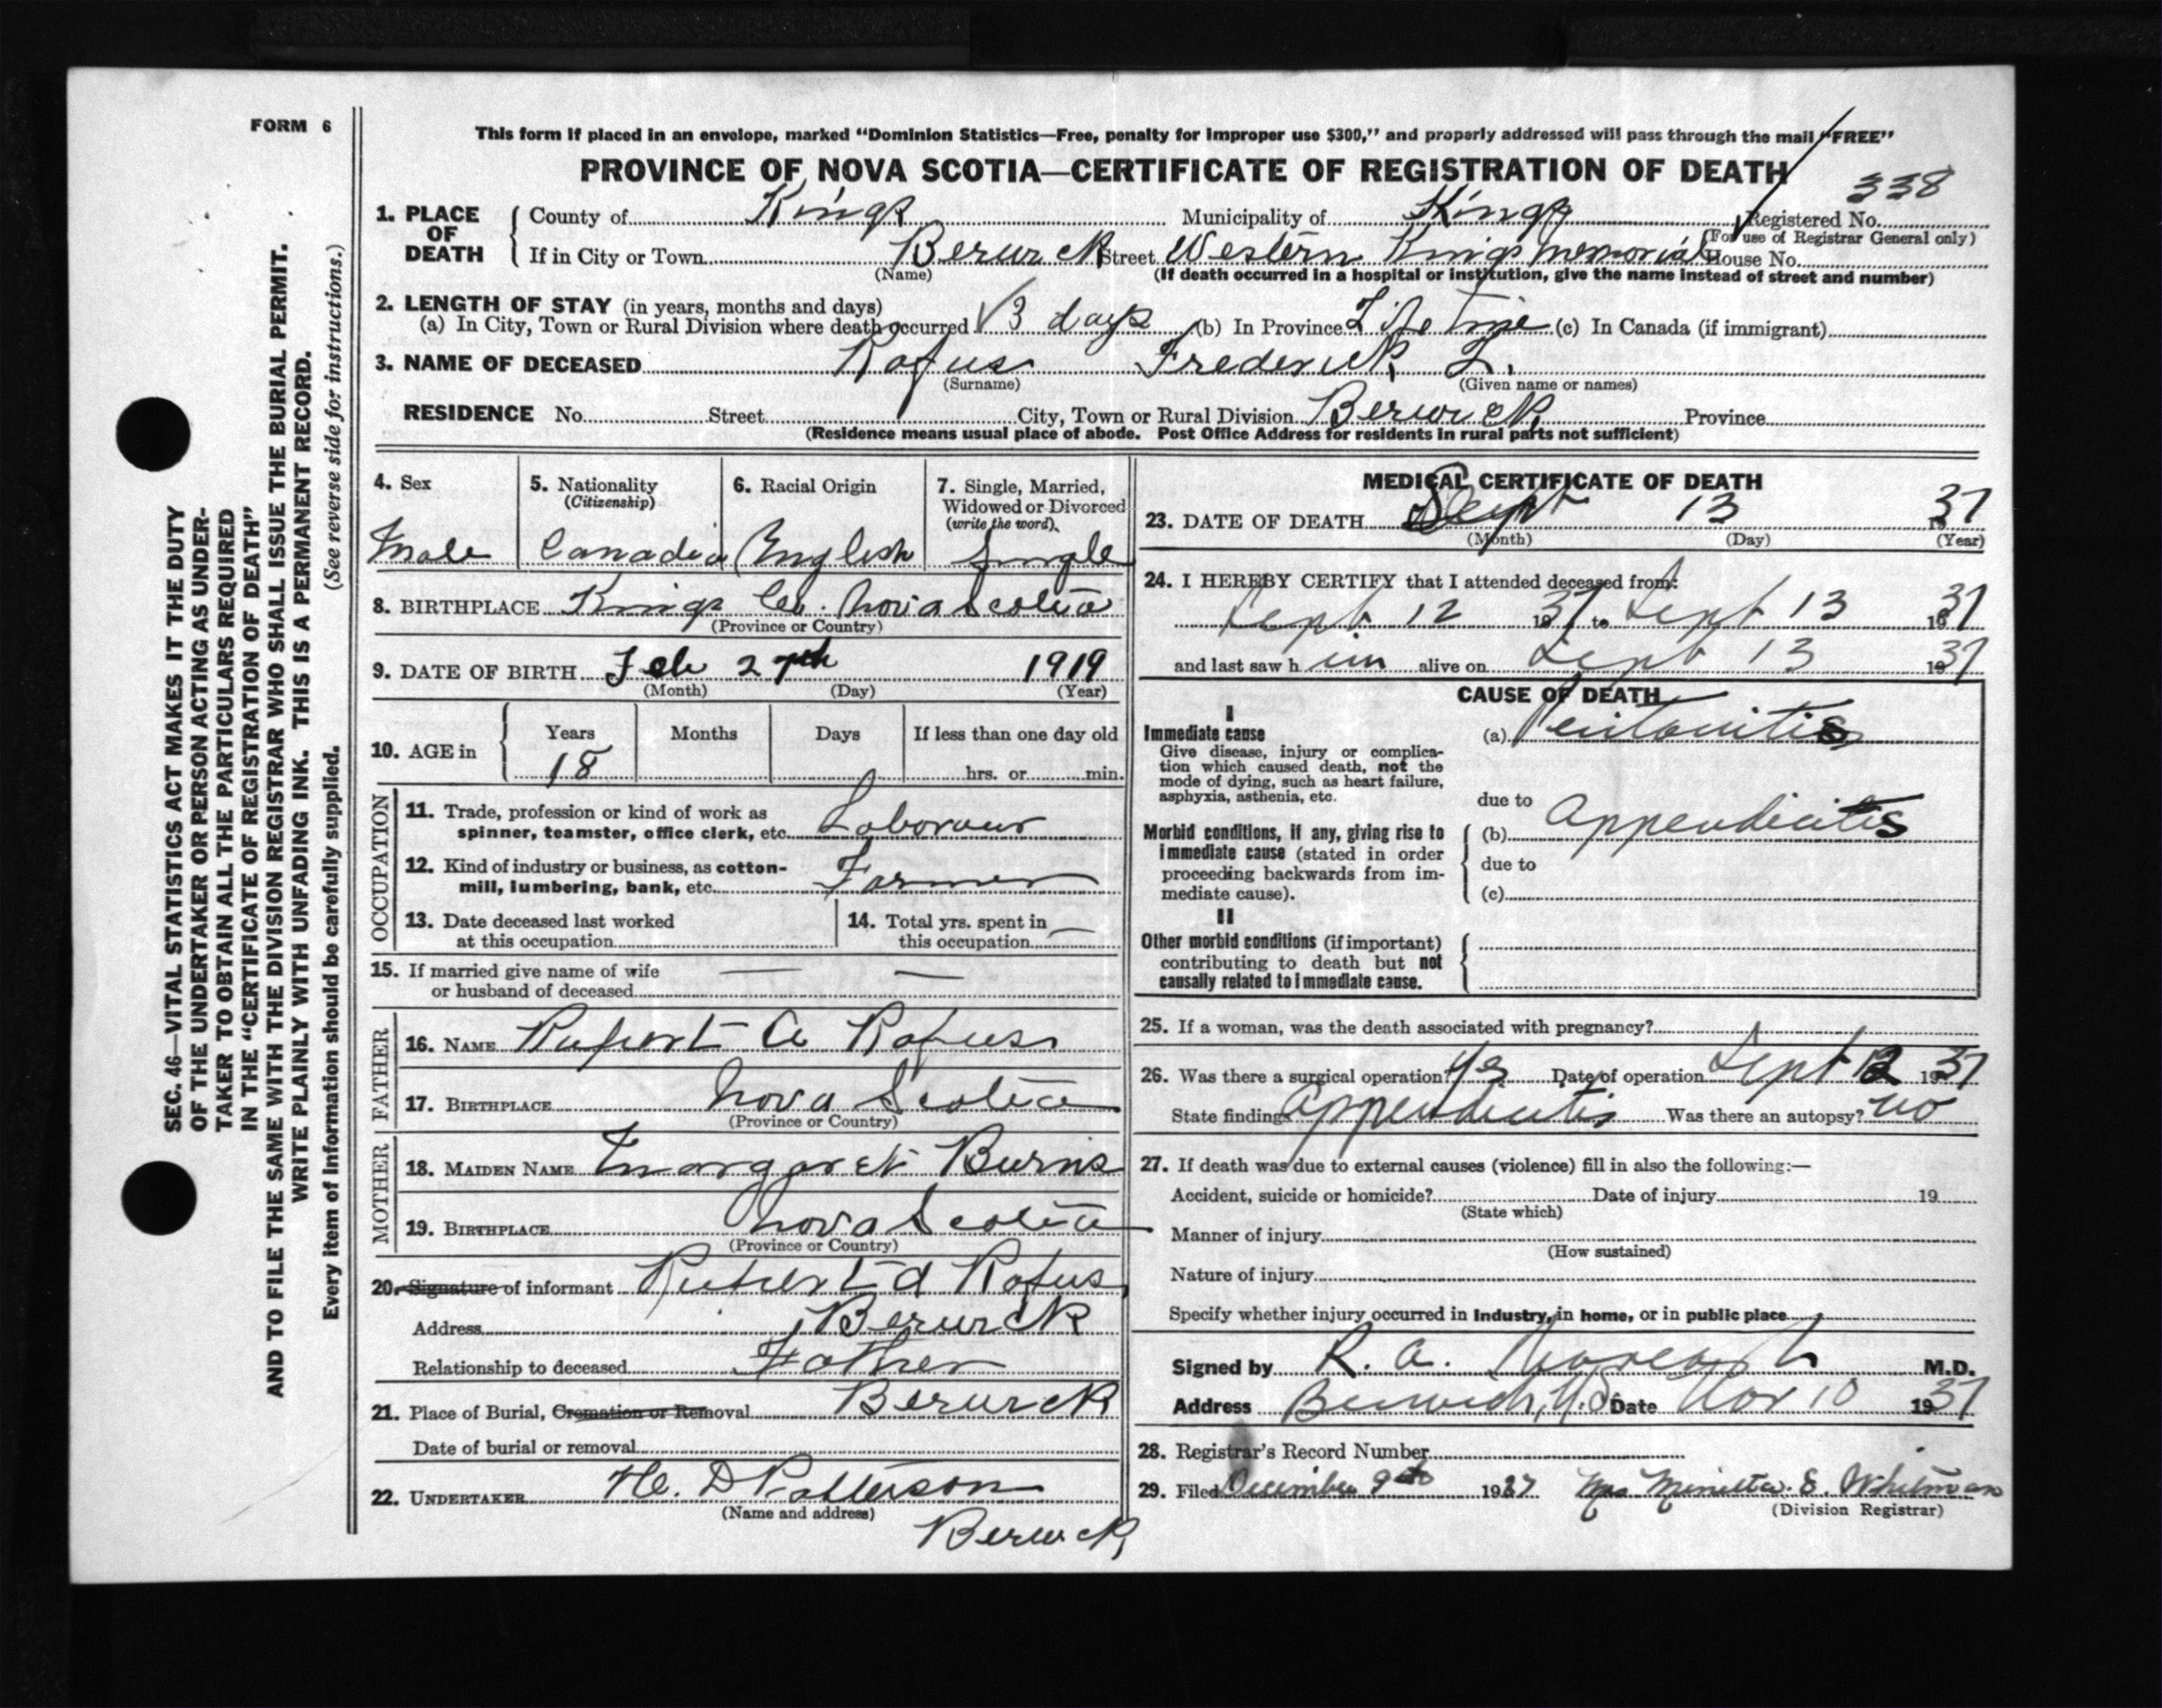 FORM 6
SEC. 46—VITAL STATISTICS ACT MAKES IT THE DUTY
OF THE UNDERTAKER OR PERSON ACTING AS UNDER-
TAKER TO OBTAIN ALL THE PARTICULARS REQUIRED
IN THE "CERTIFICATE OF REGISTRATION OF DEATH"
AND TO FILE THE SAME WITH THE DIVISION REGISTRAR WHO SHALL ISSUE THE BURIAL PERMIT.
WRITE PLAINLY WITH UNFADING INK. THIS IS A PERMANENT RECORD.
Every item of Information should be carefully supplied. (See reverse side for instructions.)
This form if placed in an envelope, marked "Dominion Statistics—Free, penalty for improper use $300," and properly addressed will pass through the mail "FREE"
PROVINCE OF NOVA SCOTIA—CERTIFICATE OF REGISTRATION OF DEATH
338
1. PLACE OF DEATH County of Kings Municipality of Kings Registered No.
(For use of Registrar General only)
If in City or Town Berwick Street Western Kings Memorial House No.
(Name) (If death occurred in a hospital or institution, give the name instead of street and number)
2. LENGTH OF STAY (in years, months and days)
(a) In City, Town or Rural Division where death occurred 3 days (b) In Province Life time (c) In Canada (if immigrant)
3. NAME OF DECEASED Rafus Frederick L.
(Surname) (Given name or names)
RESIDENCE No. Street City, Town or Rural Division Berwick Province
(Residence means usual place of abode. Post Office Address for residents in rural parts not sufficient)
4. Sex Male
5. Nationality (Citizenship) Canadian
6. Racial Origin English
7. Single, Married, Widowed or Divorced (write the word) Single
8. BIRTHPLACE Kings Co. Nova Scotia
(Province or Country)
9. DATE OF BIRTH Feb 27th 1919
(Month) (Day) (Year)
10. AGE in Years 18 Months Days If less than one day old hrs. or min.
OCCUPATION
11. Trade, profession or kind of work as
spinner, teamster, office clerk, etc. Labourer
12. Kind of industry or business, as cotton-
mill, lumbering, bank, etc. Farmer
13. Date deceased last worked at this occupation
14. Total yrs. spent in this occupation —
15. If married give name of wife — —
or husband of deceased
FATHER
16. NAME Rupert A Rafus
17. BIRTHPLACE Nova Scotia
(Province or Country)
MOTHER
18. MAIDEN NAME Margaret Burns
19. BIRTHPLACE Nova Scotia
(Province or Country)
20. Signature of informant Rupert A Rafus
Address Berwick
Relationship to deceased Father
21. Place of Burial, Cremation or Removal Berwick
Date of burial or removal
22. UNDERTAKER H. D Patterson
(Name and address)
Berwick
MEDICAL CERTIFICATE OF DEATH
23. DATE OF DEATH Sept 13 1937
(Month) (Day) (Year)
24. I HEREBY CERTIFY that I attended deceased from:
Sept 12 1937 to Sept 13 1937
and last saw him alive on Sept 13 1937
CAUSE OF DEATH
I
Immediate cause (a) Peritonitis
Give disease, injury or complica-
tion which caused death, not the
mode of dying, such as heart failure,
asphyxia, asthenia, etc.
due to
Morbid conditions, if any, giving rise to (b) Appendicitis
immediate cause (stated in order
proceeding backwards from im- due to
mediate cause). (c)
II
Other morbid conditions (if important)
contributing to death but not
causally related to immediate cause.
25. If a woman, was the death associated with pregnancy?
26. Was there a surgical operation? Yes Date of operation Sept 12 1937
State findings Appendicitis Was there an autopsy? no
27. If death was due to external causes (violence) fill in also the following:—
Accident, suicide or homicide? Date of injury 19
(State which)
Manner of injury
(How sustained)
Nature of injury
Specify whether injury occurred in Industry, in home, or in public place
Signed by R. A. M.D.
Address Berwick, N.S. Date Nov 10 1937
28. Registrar's Record Number
29. Filed December 9th 1937 Mrs Minetta E. Whitman
(Division Registrar)